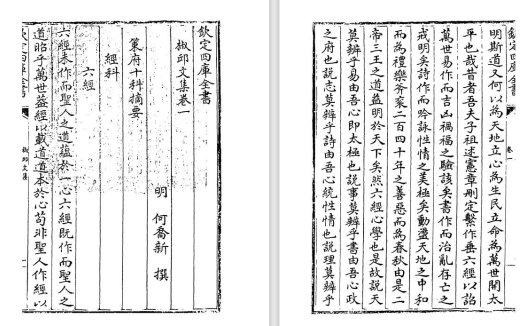 欽定四庫全書
椒邱文集卷一
明 何喬新 撰
策府十科摘要
經科
六經
六經未作而聖人之道蘊於一心六經既作而聖人之
道昭乎萬世蓋經以載道道本於心苟非聖人作經以
椒邱文集
欽定四庫全書
卷一
明斯道又何以為天地立心為生民立命為萬世開太
平也哉昔者吾夫子祖述憲章刪定繫作垂六經以詔
萬世易作而吉凶禍福之驗該矣書作而治亂存亡之
戒明矣詩作而吟詠性情之美極矣動盪天地之中和
而為禮樂斧衮二百四十年之善惡而為春秋由是二
帝三王之道蓋明於天下矣然六經心學也是故說天
莫辨乎易由吾心即太極也說事莫辨乎書由吾心政
之府也說志莫辨乎詩由吾心統性情也說理莫辨乎